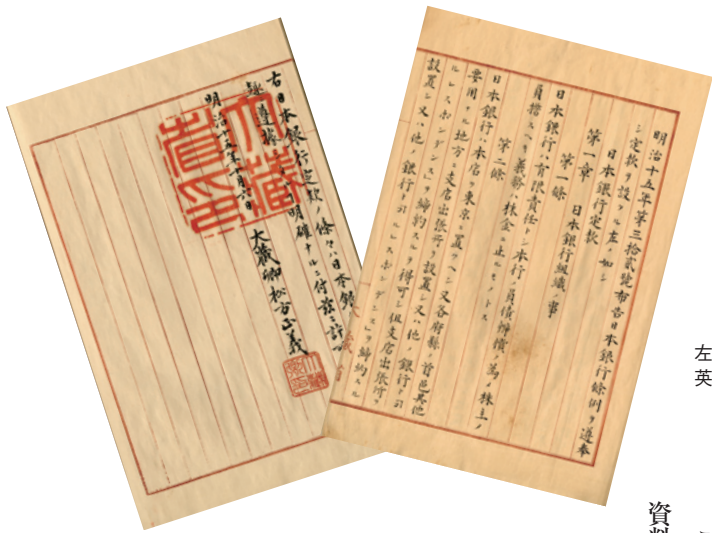 明治十五年第三拾貳號布告日本銀行條例ヲ遵奉
シ定款ヲ設クル左ノ如シ
日本銀行定款
第一章 日本銀行組織ノ事
第一條
日本銀行ハ有限責任トシ本行ノ負債辨償ノ爲メ株主ノ
負擔スヘキ義務ハ株金ニ止ルモノトス
第二條
日本銀行ハ本店ヲ東京ニ置クヘシ又各府縣ノ首邑其他
要用ナル地方ニ支店出張所ヲ設置シ又ハ他ノ銀行トコ
ルレスポンデンスヲ締約スルヲ得可シ但支店出張所ヲ
設置シ又ハ他ノ銀行トコルレスポンデンスヲ締約スル
右日本銀行定款ノ條々ハ日本銀
明確ナルニ付茲ニ許
明治十五年十月六日
大藏卿松方正義
大藏省印
左
英
資料